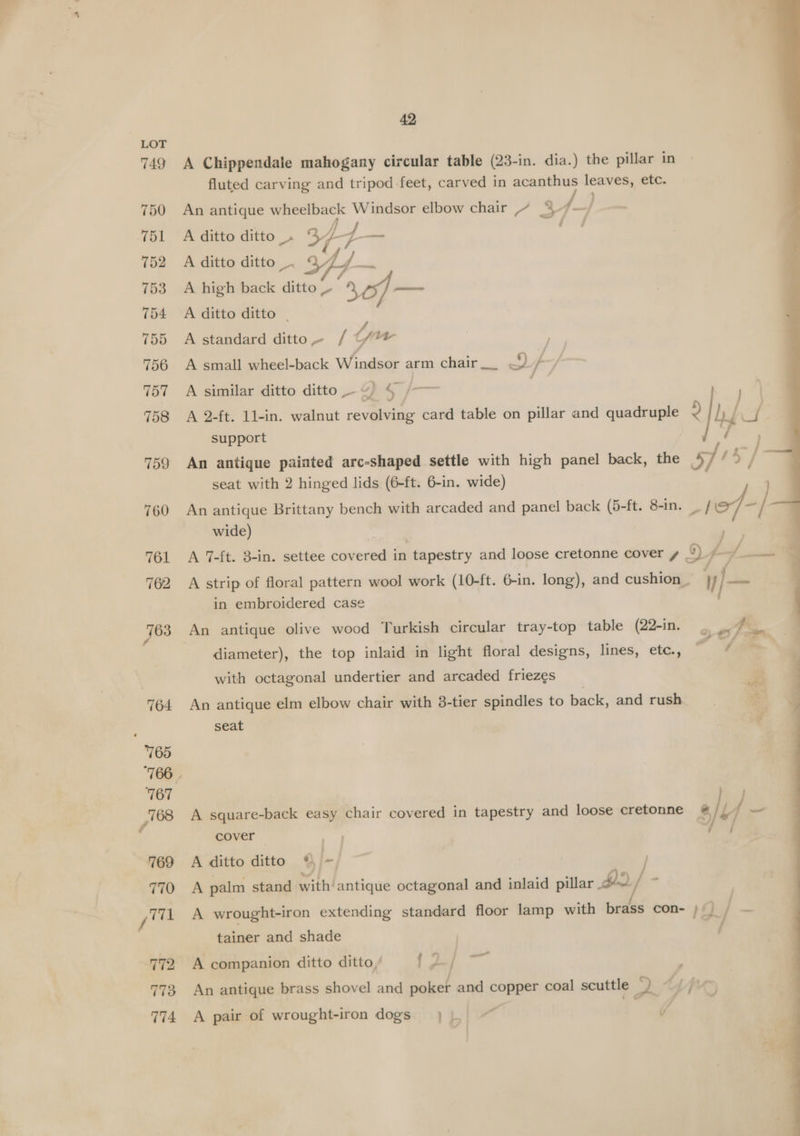 42
LOT
749 A Chippendale mahogany circular table (23-in. dia.) the pillar in
fluted carving and tripod feet, carved in acanthus leaves, etc.
750 An antique wheelback Windsor elbow chair
751 A ditto ditto
752 A ditto ditto
753 A high back ditto
754 A ditto ditto
755 A standard ditto
756 A small wheel-back Windsor arm chair
757 A similar ditto ditto
758 A 2-ft. 11-in. walnut revolving card table on pillar and quadruple
support
759 An antique painted arc-shaped settle with high panel back, the
seat with 2 hinged lids (6-ft. 6-in. wide)
760 An antique Brittany bench with arcaded and panel back (5-ft. 8-in.
wide)
761 A 7-ft. 3-in. settee covered in tapestry and loose cretonne cover
762 A strip of floral pattern wool work (10-ft. 6-in. long), and cushion
in embroidered case
763 An antique olive wood Turkish circular tray-top table (22-in.
diameter), the top inlaid in light floral designs, lines, etc.,
with octagonal undertier and arcaded friezes
764 An antique elm elbow chair with 3-tier spindles to back, and rush
seat
765
766
767
768 A square-back easy chair covered in tapestry and loose cretonne
cover
769 A ditto ditto
770 A palm stand with antique octagonal and inlaid pillar
771 A wrought-iron extending standard floor lamp with brass con-
tainer and shade
772 A companion ditto ditto
773 An antique brass shovel and poker and copper coal scuttle
774 A pair of wrought-iron dogs